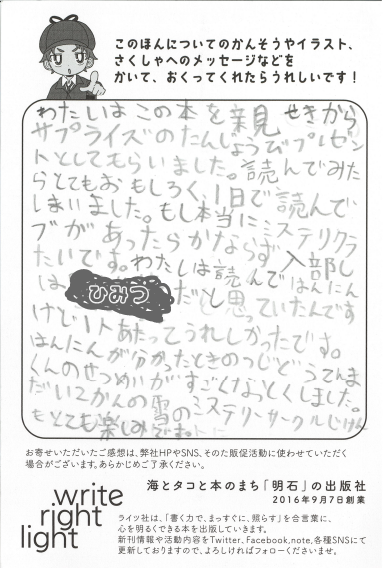 このほんについてのかんそうやイラスト、
さくしゃへのメッセージなどを
かいて、おくってくれたらうれしいです！
わたしはこの本を親せきから
サプライズのたんじょうびプレゼン
トとしてもらいました。読んでみた
らとてもおもしろく、1日で読んで
しまいました。もし本当にミステリクラ
ブがあったらかならず入部し
たいです。わたしは読んではんにん
は ひみつ だと思っていたんです
けど1人あたってうれしかったです。
はんにんが分かったときのつじどうてんま
くんのせつめいがすごくなっとくしました。
だい2かんの雪のミステリーサークルじけん
もとても楽しみです。
お寄せいただいたご感想は、弊社HPやSNS、そのた販促活動に使わせていただく
場合がございます。あらかじめご了承ください。
write
right
light
海とタコと本のまち「明石」の出版社
2016年9月7日創業
ライツ社は、「書く力で、まっすぐに、照らす」を合言葉に、
心を明るくできる本を出版していきます。
新刊情報や活動内容をTwitter、Facebook、note、各種SNSにて
更新しておりますので、よろしければフォローくださいませ。